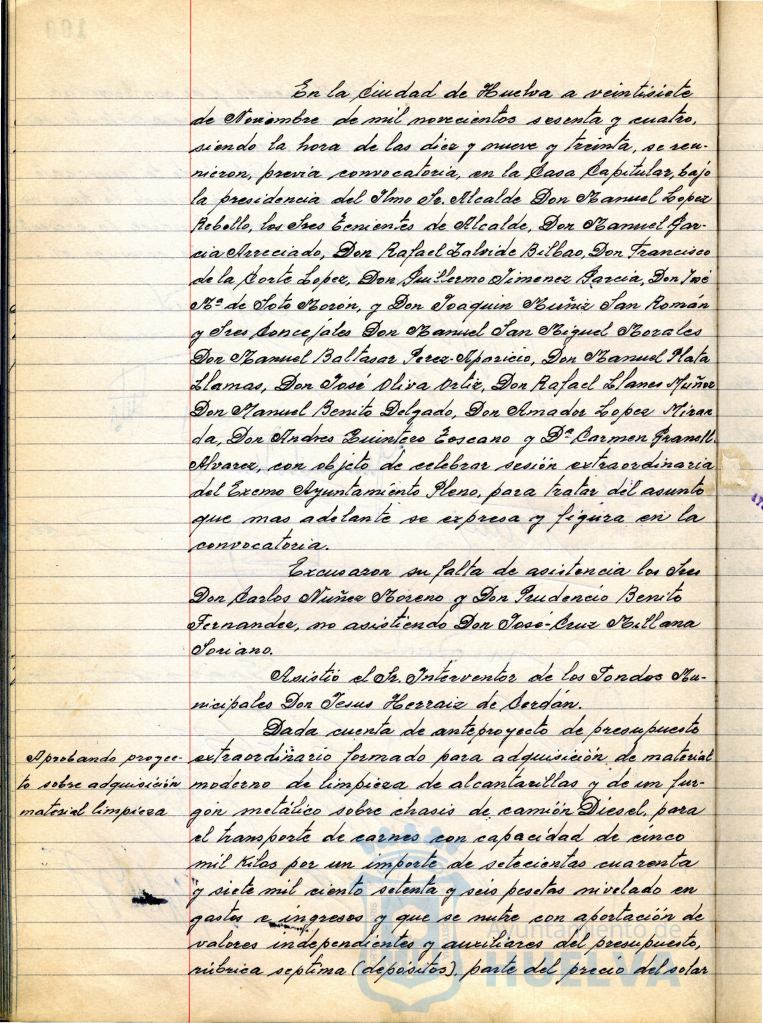 En la Ciudad de Huelva a veintisiete
de Noviembre de mil novecientos sesenta y cuatro,
siendo la hora de las diez y nueve y treinta, se reu-
nieron, previa convocatoria, en la Casa Capitular, bajo
la presidencia del Ilmo Sr. Alcalde Don Manuel Lopez
Rebollo, los Sres Tenientes de Alcalde, Don Manuel Gar-
cia Arreciado, Don Rafael Zalvide Bilbao, Don Francisco
de la Corte Lopez, Don Guillermo Jimenez Garcia, Don José
Mª de Soto Morón, y Don Joaquin Muñiz San Román
y Sres Concejales Don Manuel San Miguel Morales
Don Manuel Baltasar Perez-Aparicio, Don Manuel Plata
Llamas, Don José Oliva Ortiz, Don Rafael Llanes Muñoz
Don Manuel Benito Delgado, Don Amador Lopez Miran
da, Don Andres Quintero Toscano y Dª Carmen Granell
Alvarez, con objeto de celebrar sesión extraordinaria
del Excmo Ayuntamiento Pleno, para tratar del asunto
que mas adelante se expresa y figura en la
convocatoria.
Excusaron su falta de asistencia los Sres
Don Carlos Nuñez Moreno y Don Prudencio Benito
Fernandez, no asistiendo Don José-Cruz Millana
Soriano.
Asistió el Sr. Interventor de los Fondos Mu-
nicipales Don Jesus Herraiz de Serdán.
Aprobando proyec-
to sobre adquisición
material limpieza
Dada cuenta de anteproyecto de presupuesto
extraordinario formado para adquisición de material
moderno de limpieza de alcantarillas y de un fur-
gón metálico sobre chasis de camión Diesel, para
el transporte de carnes con capacidad de cinco
mil kilos por un importe de setecientas cuarenta
y siete mil ciento setenta y seis pesetas nivelado en
gastos e ingresos y que se nutre con aportación de
valores independientes y auxiliares del presupuesto,
rúbrica septima (depósitos), parte del precio del solar
Ayuntamiento de
HUELVA